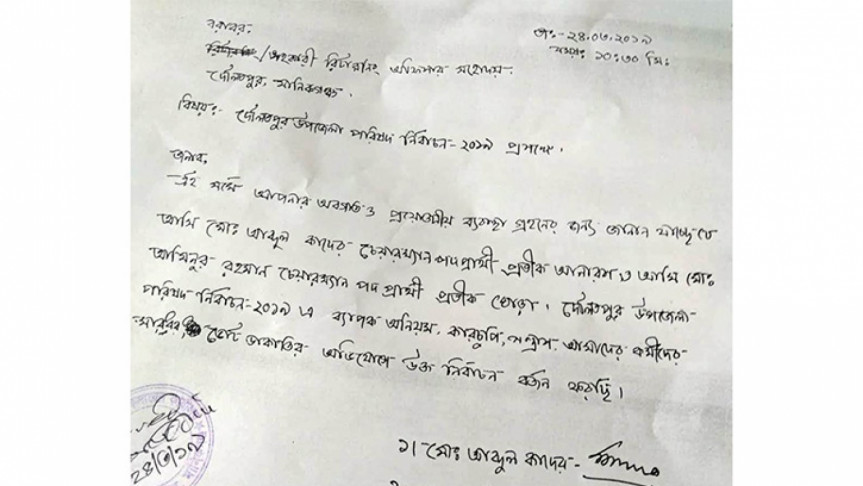 বরাবর,
তাং-২৪.০৩.২০১৯
সময়ঃ ১০:৩০ মিঃ
রিটার্নিং/সহকারী রিটার্নিং অফিসার মহোদয়।
দৌলতপুর, মানিকগঞ্জ।
বিষয়ঃ- দৌলতপুর উপজেলা পরিষদ নির্বাচন-২০১৯ প্রসঙ্গে।
জনাব,
এই মর্মে আপনার অবগতি ও প্রয়োজনীয় ব্যবস্থা গ্রহনের জন্য জানান যাচ্ছে যে
আমি মোঃ আব্দুল কাদের চেয়ারম্যান পদ প্রার্থী প্রতীক আনারস ও আমি মোঃ
আমিনুর রহমান চেয়ারম্যান পদ প্রার্থী প্রতীক ঘোড়া। দৌলতপুর উপজেলা
পরিষদ নির্বাচন-২০১৯ এ ব্যাপক অনিয়ম, কারচুপি, সন্ত্রাস, আমাদের কর্মীদের
মারধর, ভোট ডাকাতির অভিযোগে উক্ত নির্বাচন বর্জন করছি।
১। মোঃ আব্দুল কাদের -
২৪/৩/১৯